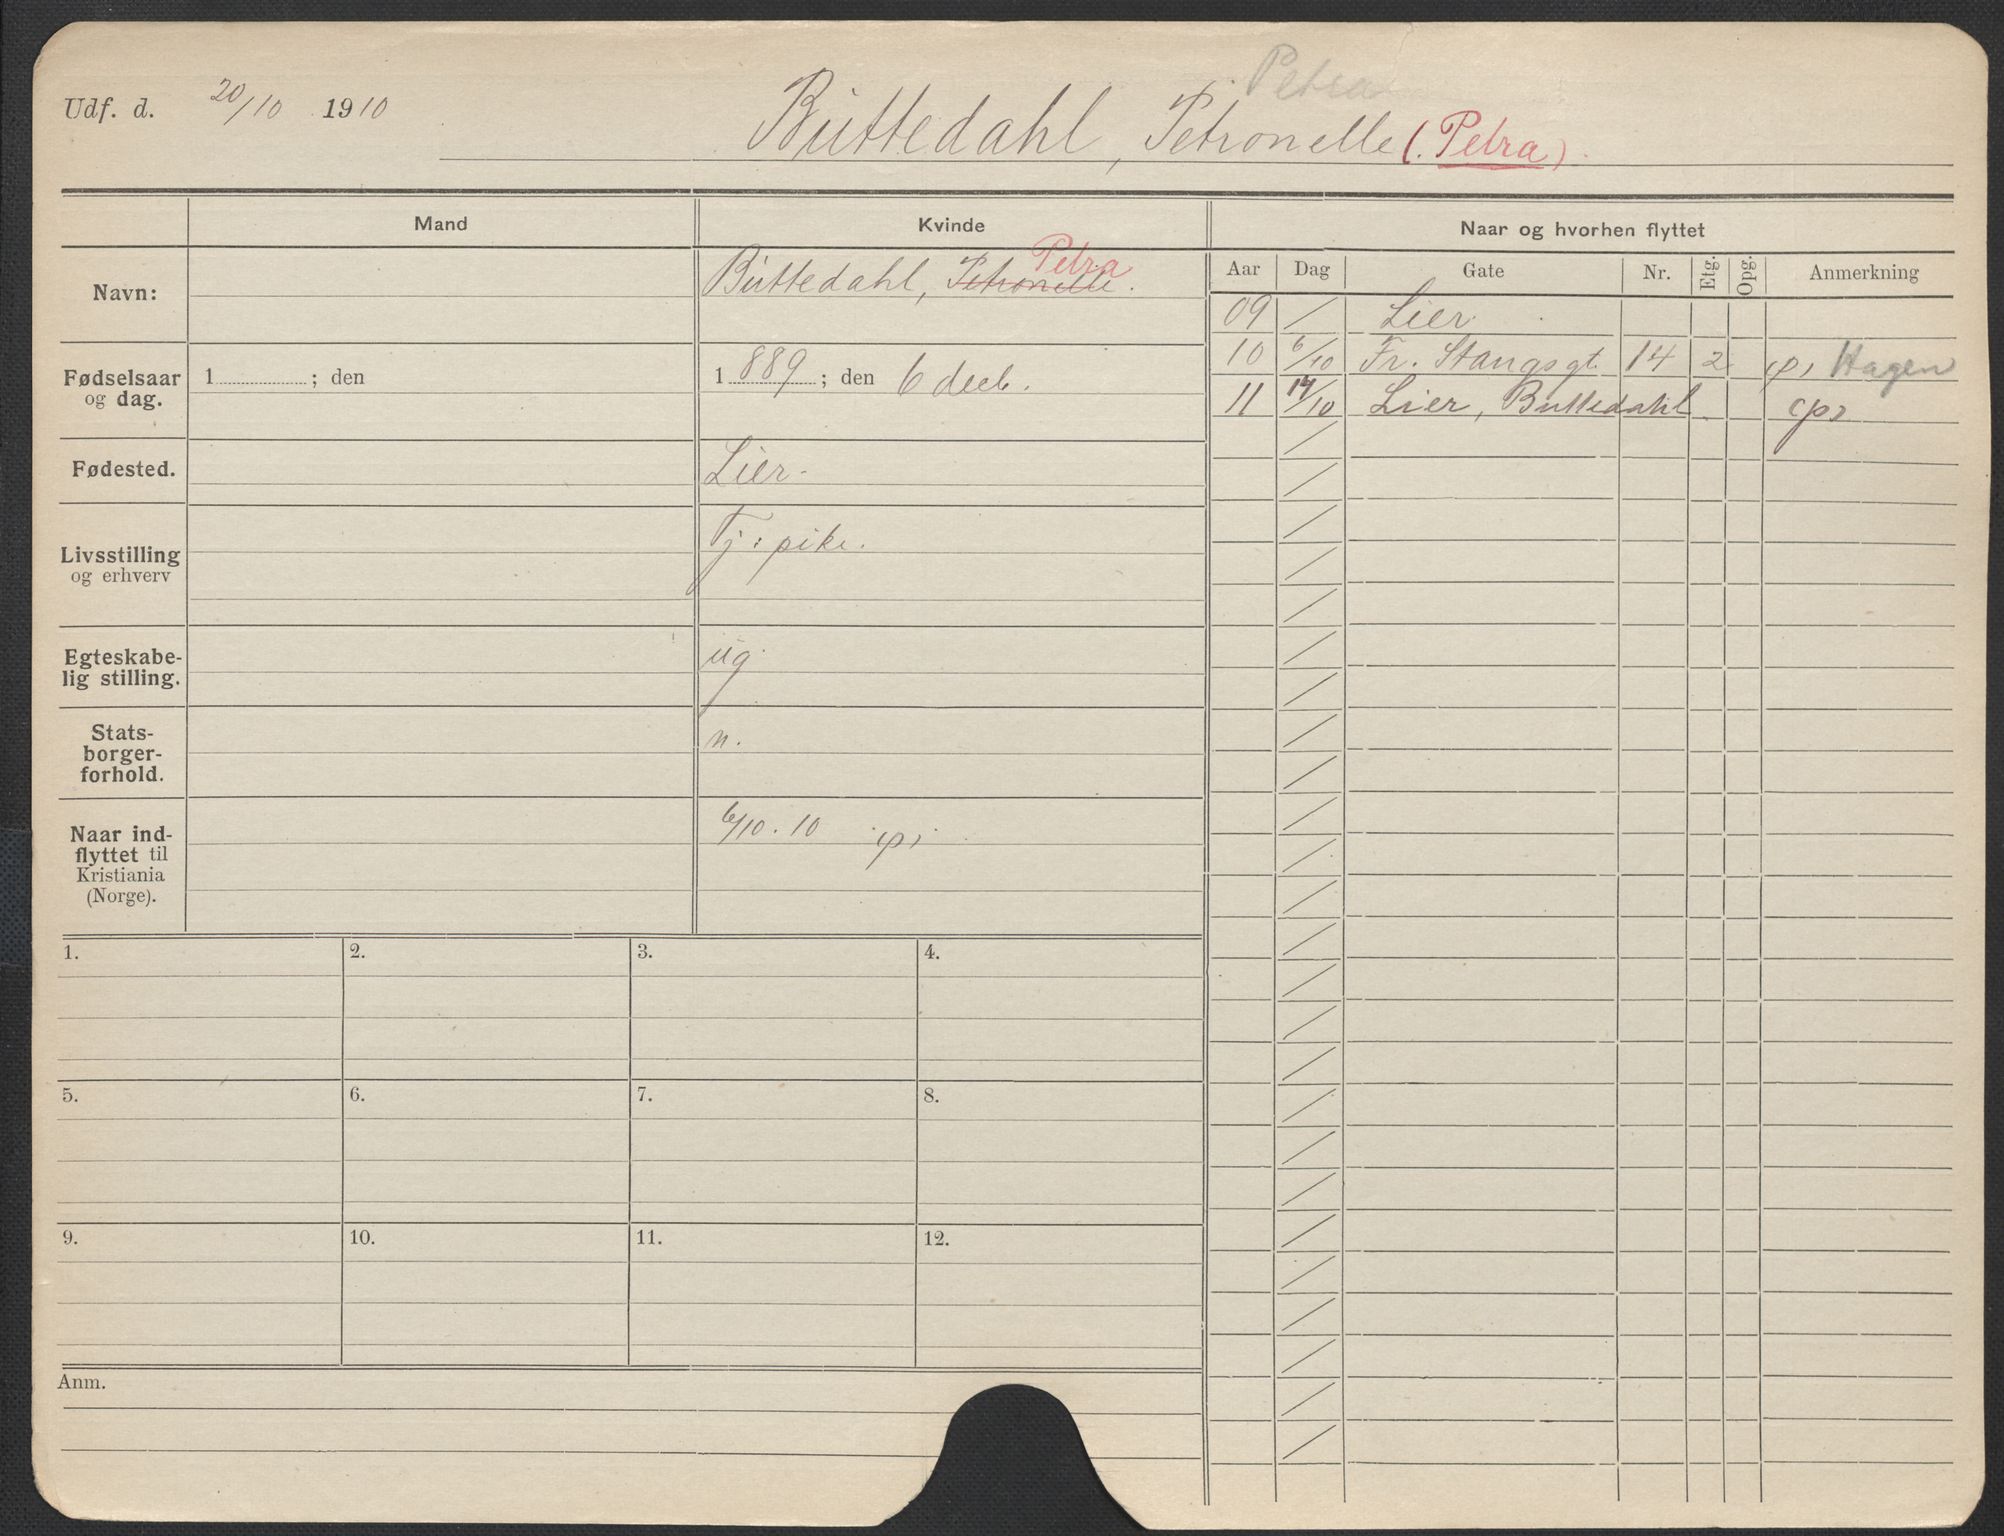 Petra
Udf. d. 20/10 1910 Buttedahl, Petronelle (Petra)
Mand Kvinde Naar og hvorhen flyttet
Navn: Buttedahl, Petronelle. Petra
Aar Dag Gate Nr. Etg. Opg. Anmerkning
09 / Lier
10 6/10 Fr. Stangsgt. 14 2 Hagen
11 14/10 Lier, Buttedahl
Fødselsaar og dag. 1 ; den 1889 ; den 6 decb.
Fødested. Lier
Livsstilling og erhverv Tj: pike.
Egteskabe-
lig stilling. ug
Stats-
borger-
forhold. n.
Naar ind-
flyttet til
Kristiania
(Norge). 6/10. 10
1. 2. 3. 4.
5. 6. 7. 8.
9. 10. 11. 12.
Anm.